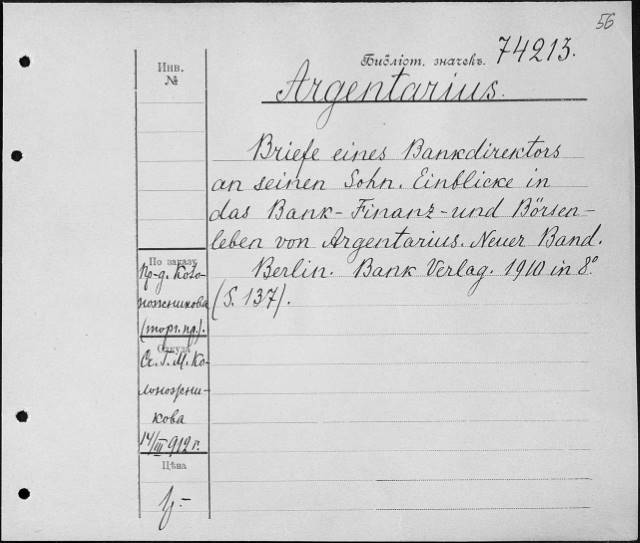 56
Библіот. значекъ. 74213.
Argentarius.
Инв.
№
Briefe eines Bankdirektors
an seinen Sohn. Einblicke in
das Bank-Finanz-und Börsen-
leben von Argentarius. Neuer Band.
Berlin. Bank Verlag. 1910 in 8°
(S. 137).
По заказу
пр-д. Коло-
ножникова
(торг. пр.).
Откуда
М. Ко-
лоножни-
кова
14/III 912 г.
Цѣна